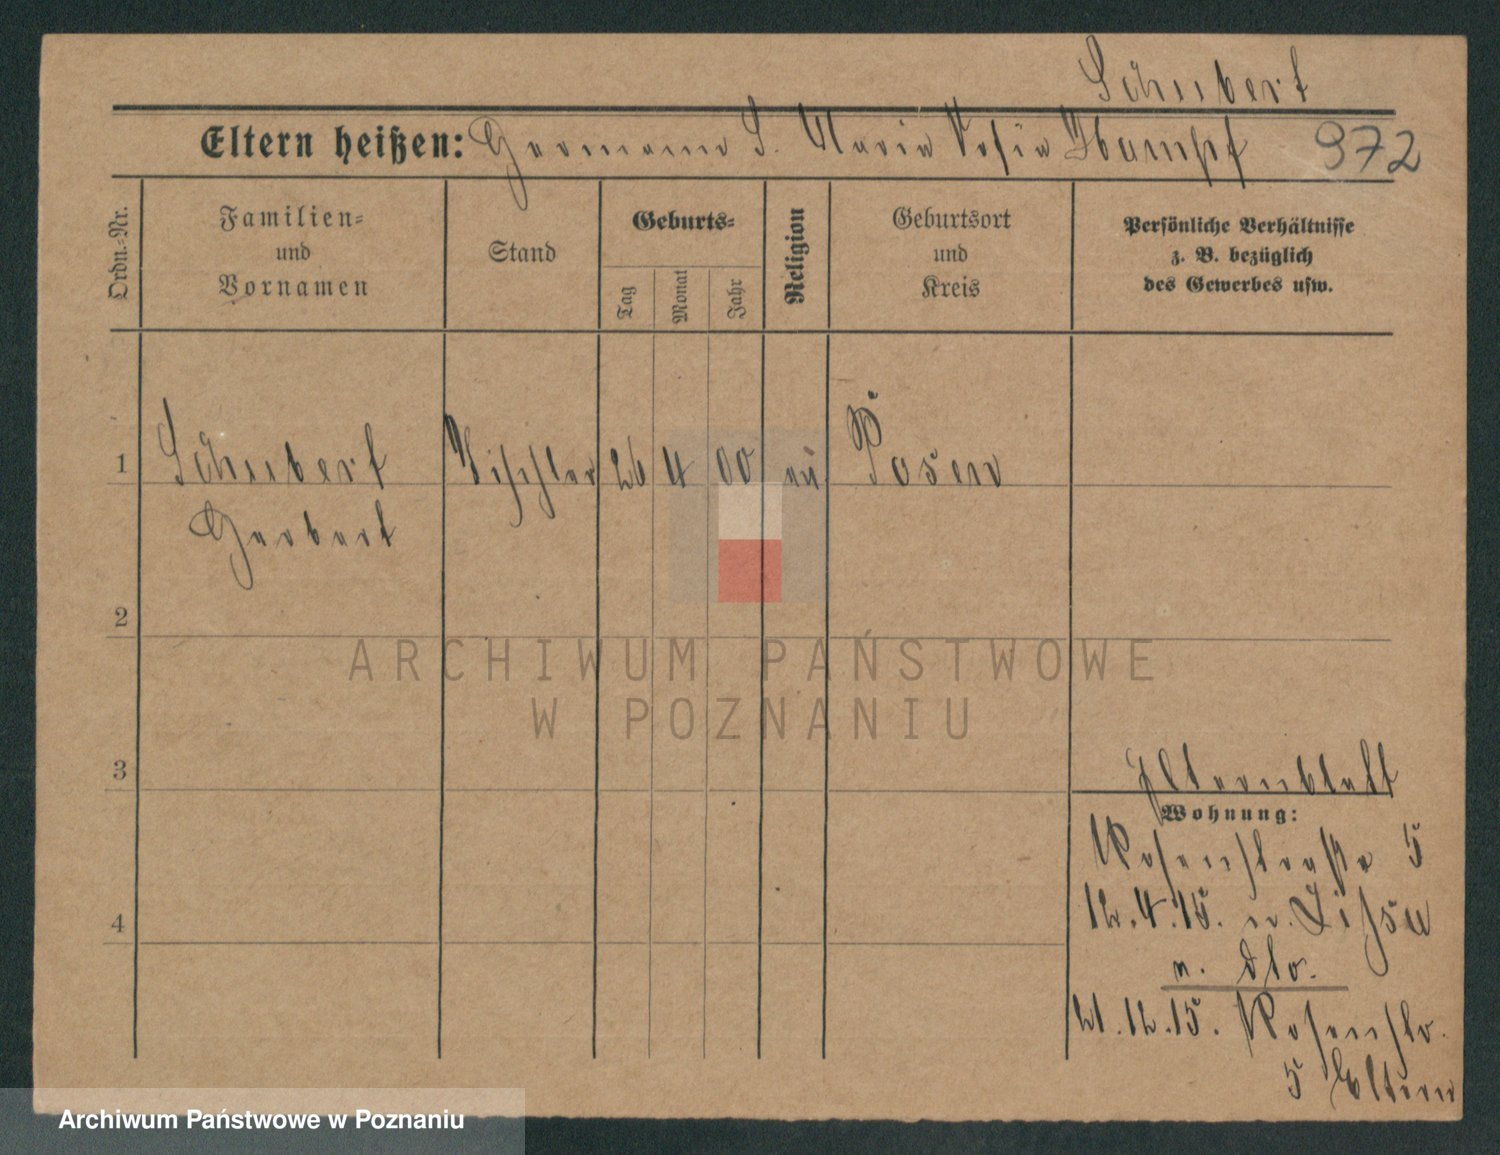 Schubert
Eltern heißen: Hermann S. Maria Sofia Dampf 972
Ordn.-Nr.
Familien-
und
Vornamen
Stand
Geburts-
Tag
Monat
Jahr
Religion
Geburtsort
und
Kreis
Persönliche Verhältnisse
z. B. bezüglich
des Gewerbes usw.
1 Schubert Tischler 26 4 00 ev. Posen
Herbert
2
3
4
Elternblatt
Wohnung:
Rosenstraße 5
12.4.15. n. Lissa
n. dto.
21.12.15. Rosenstr.
5 Eltern
ARCHIWUM PAŃSTWOWE
W POZNANIU
Archiwum Państwowe w Poznaniu